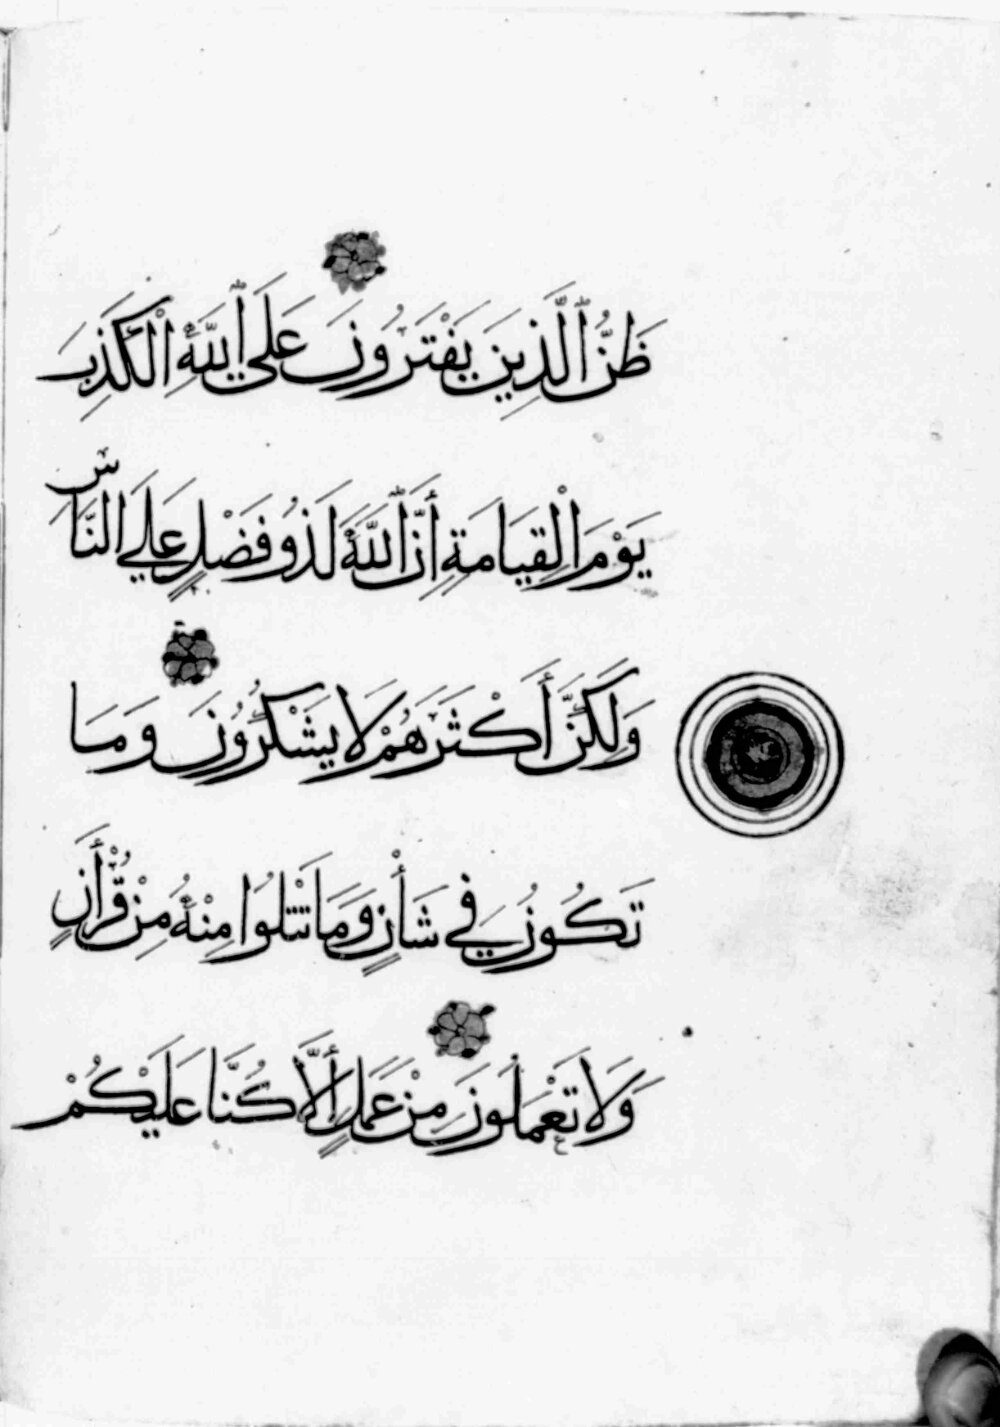 ظَنُّ الَّذِينَ يَفْتَرُونَ عَلَي اللَّهِ الْكَذِبَ
يَوْمَ الْقِيَامَةِ أَنَّ اللَّهَ لَذُو فَضْلٍ عَلَي النَّاسِ
وَلَكِنَّ أَكْثَرَهُمْ لَا يَشْكُرُونَ وَمَا
تَكُونُ فِي شَأْنٍ وَمَا تَتْلُوا مِنْهُ مِنْ قُرْأَنٍ
وَلَا تَعْمَلُونَ مِنْ عَمَلٍ أَلَّا كُنَّا عَلَيْكُمْ